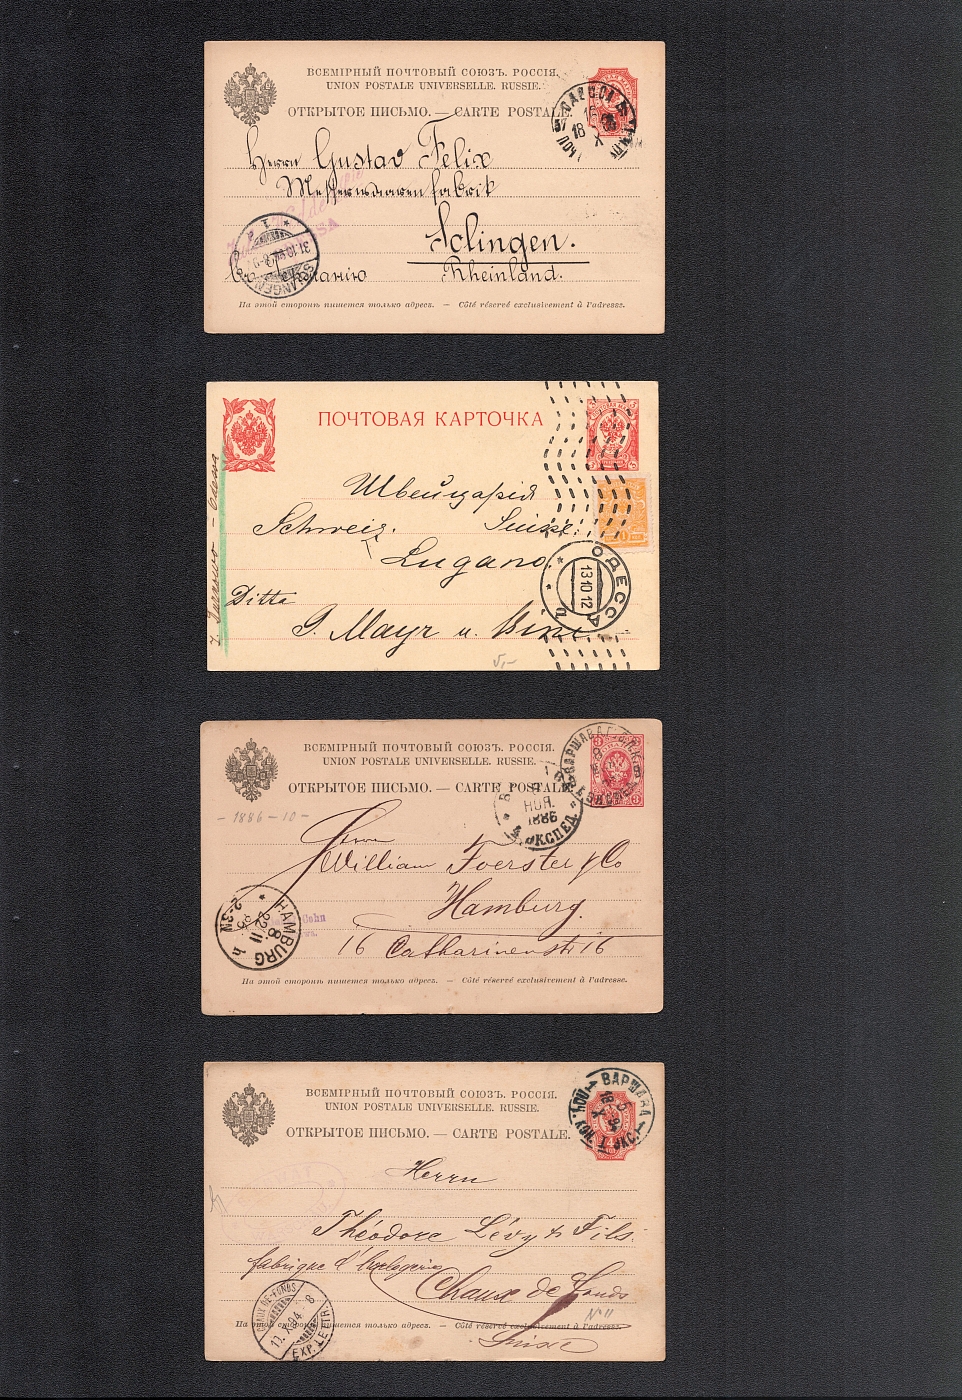 ВСЕМІРНЫЙ ПОЧТОВЫЙ СОЮЗЪ. РОССІЯ.
UNION POSTALE UNIVERSELLE. RUSSIE.
ОТКРЫТОЕ ПИСЬМО. — CARTE POSTALE.
Herrn Gustav Felix
Messerwaarenfabrik
Solingen.
Rheinland.
SOLINGEN
На этой сторонѣ пишется только адресъ. — Côté réservé exclusivement à l'adresse.
ПОЧТОВАЯ КАРТОЧКА
Швейцарія
Schweiz. Suisse.
Lugano.
Ditta
G. Mayr u.
ОДЕССА
13 10 12
ВСЕМІРНЫЙ ПОЧТОВЫЙ СОЮЗЪ. РОССІЯ.
UNION POSTALE UNIVERSELLE. RUSSIE.
ОТКРЫТОЕ ПИСЬМО. — CARTE POSTALE
ВАРШАВА
НОЯ.
1886
ЭКСПЕД.
- 1886 - 10 -
Herrn
William Foerster & Co
Hamburg.
16 Catharinenstr 16
HAMBURG
22 11
2-3N
Cohn
На этой сторонѣ пишется только адресъ. — Côté réservé exclusivement à l'adresse.
ВСЕМІРНЫЙ ПОЧТОВЫЙ СОЮЗЪ. РОССІЯ.
UNION POSTALE UNIVERSELLE. RUSSIE.
ОТКРЫТОЕ ПИСЬМО. — CARTE POSTALE.
ВАРШАВА
Herrn
Théodore Lévy & Fils.
fabrique d'horlogerie
Chaux de Fonds
No 11
CHAUX-DE-FONDS
10. X. 94 - 8
EXP. LETTR.
На этой сторонѣ пишется только адресъ. — Côté réservé exclusivement à l'adresse.
Suisse